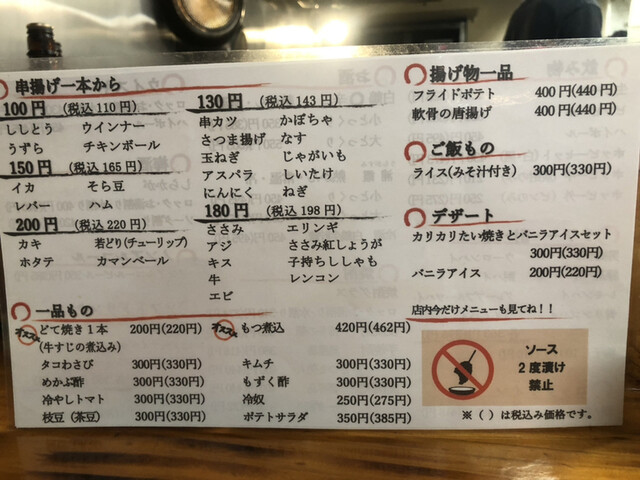 串揚げ一本から
100円 (税込110円)
ししとう ウインナー
うずら チキンボール
150円 (税込165円)
イカ そら豆
レバー ハム
200円 (税込220円)
カキ 若どり(チューリップ)
ホタテ カマンベール
130円 (税込143円)
串カツ かぼちゃ
さつま揚げ なす
玉ねぎ じゃがいも
アスパラ しいたけ
にんにく ねぎ
180円 (税込198円)
ささみ エリンギ
アジ ささみ紅しょうが
キス 子持ちししゃも
牛 レンコン
エビ
一品もの
オススメ どて焼き1本 200円(220円)
(牛すじの煮込み)
タコわさび 300円(330円)
めかぶ酢 300円(330円)
冷やしトマト 300円(330円)
枝豆(茶豆) 300円(330円)
オススメ もつ煮込 420円(462円)
キムチ 300円(330円)
もずく酢 300円(330円)
冷奴 250円(275円)
ポテトサラダ 350円(385円)
揚げ物一品
フライドポテト 400円(440円)
軟骨の唐揚げ 400円(440円)
ご飯もの
ライス(みそ汁付き) 300円(330円)
デザート
カリカリたい焼きとバニラアイスセット
300円(330円)
バニラアイス 200円(220円)
店内今だけメニューも見てね!!
ソース
2度漬け
禁止
※( )は税込み価格です。